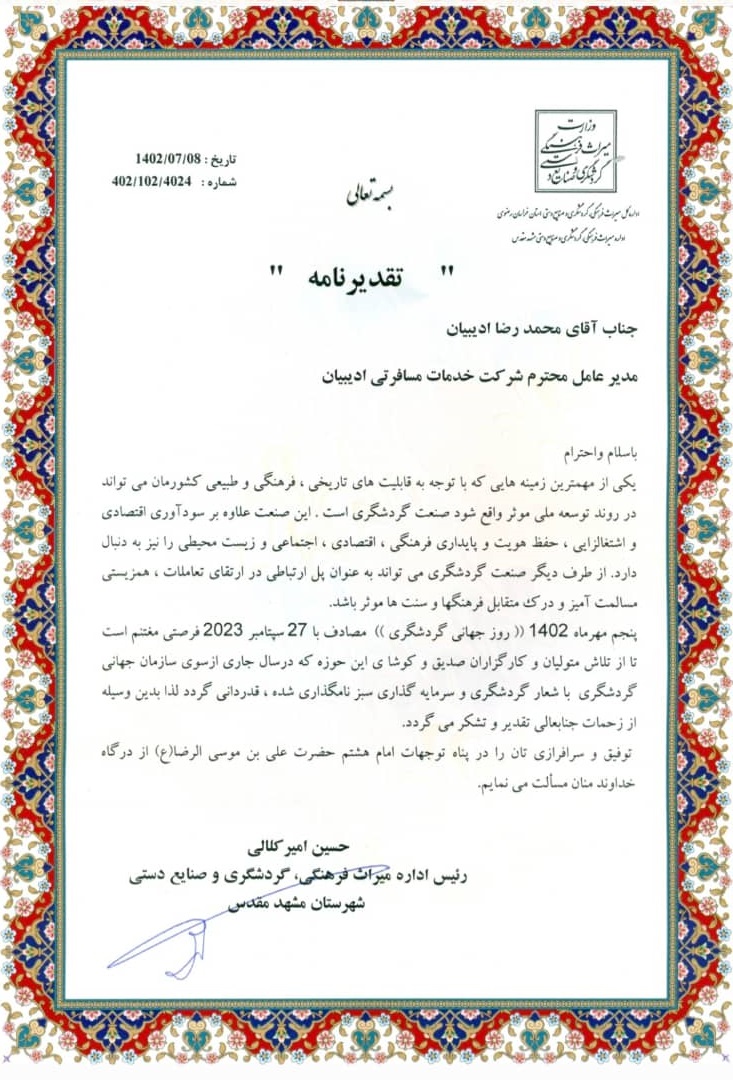 وزارت
میراث فرهنگی
گردشگری و صنایع دستی
اداره کل میراث فرهنگی، گردشگری و صنایع دستی استان خراسان رضوی
اداره میراث فرهنگی، گردشگری و صنایع دستی مشهد مقدس
تاریخ : 1402/07/08
شماره : 402/102/4024
بسمه تعالی
" تقدیرنامه "
جناب آقای محمد رضا ادیبیان
مدیر عامل محترم شرکت خدمات مسافرتی ادیبیان
باسلام واحترام
یکی از مهمترین زمینه هایی که با توجه به قابلیت های تاریخی ، فرهنگی و طبیعی کشورمان می تواند
در روند توسعه ملی موثر واقع شود صنعت گردشگری است . این صنعت علاوه بر سودآوری اقتصادی
و اشتغالزایی ، حفظ هویت و پایداری فرهنگی ، اقتصادی ، اجتماعی و زیست محیطی را نیز به دنبال
دارد. از طرف دیگر صنعت گردشگری می تواند به عنوان پل ارتباطی در ارتقای تعاملات ، همزیستی
مسالمت آمیز و درک متقابل فرهنگها و سنت ها موثر باشد.
پنجم مهرماه 1402 (( روز جهانی گردشگری )) مصادف با 27 سپتامبر 2023 فرصتی مغتنم است
تا از تلاش متولیان و کارگزاران صدیق و کوشا ی این حوزه که درسال جاری ازسوی سازمان جهانی
گردشگری با شعار گردشگری و سرمایه گذاری سبز نامگذاری شده ، قدردانی گردد لذا بدین وسیله
از زحمات جنابعالی تقدیر و تشکر می گردد.
توفیق و سرافرازی تان را در پناه توجهات امام هشتم حضرت علی بن موسی الرضا(ع) از درگاه
خداوند منان مسألت می نمایم.
حسین امیرکلالی
رئیس اداره میراث فرهنگی، گردشگری و صنایع دستی
شهرستان مشهد مقدس